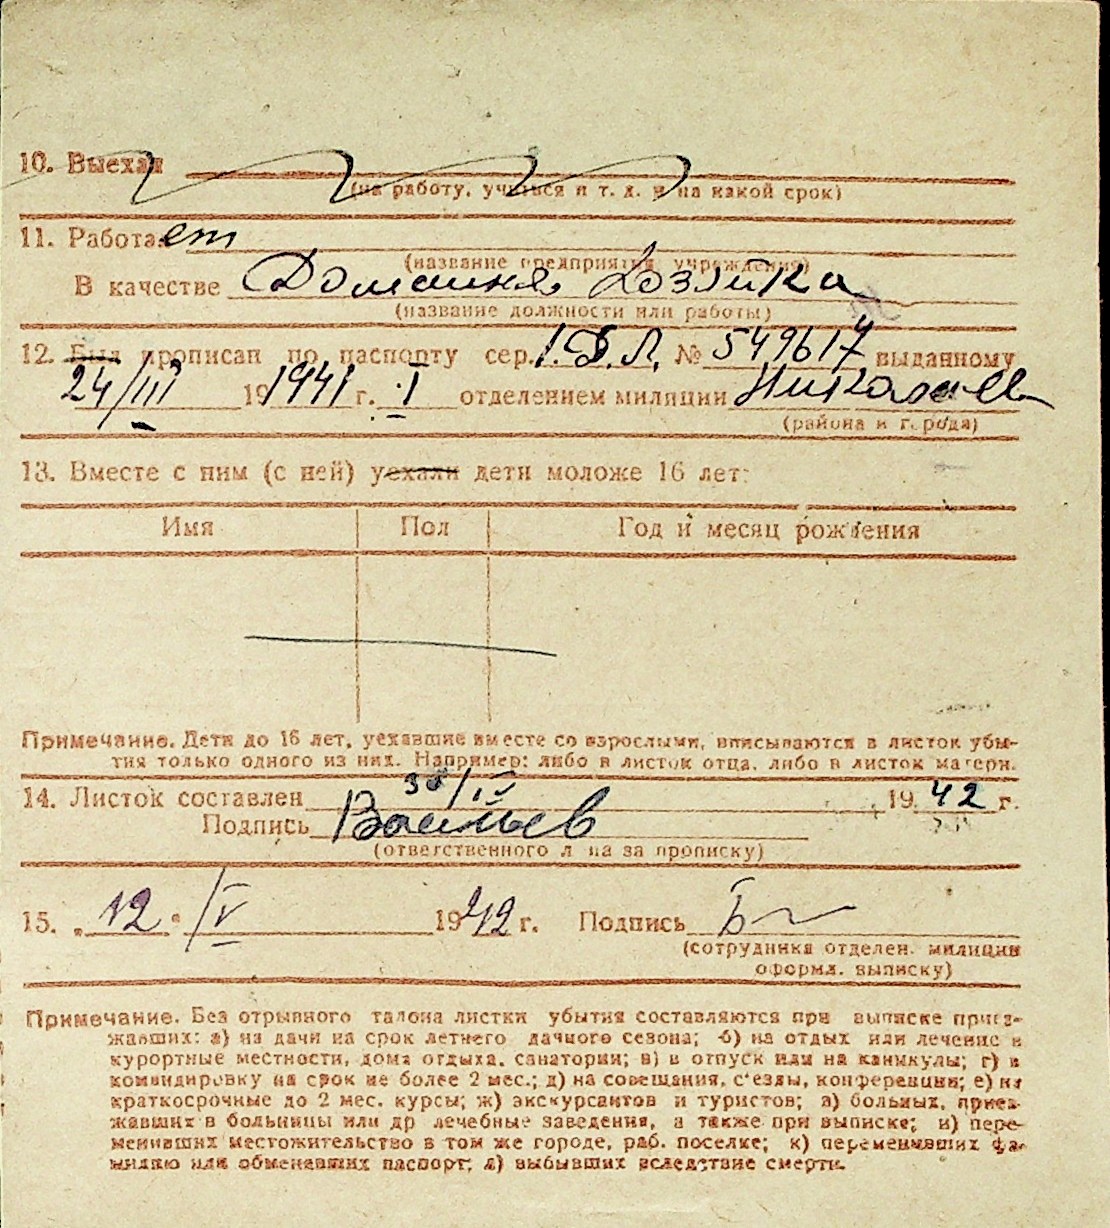 10. Выехал
(на работу, учиться и т. д. и на какой срок)
11. Работает
(название предприятия, учреждения)
В качестве Домашняя Хозяйка
(название должности или работы)
12. Был прописан по паспорту сер. I Д.Л. № 549617 выданному
24/III 19 1941 г. I отделением милиции Николаев
(района и города)
13. Вместе с ним (с ней) уехали дети моложе 16 лет:
Имя Пол Год и месяц рождения
Примечание. Дети до 16 лет, уехавшие вместе со взрослыми, вписываются в листок убы-
тия только одного из них. Например: либо в листок отца, либо в листок матери.
14. Листок составлен 30/IV 1942 г.
Подпись Васильев
(ответственного л на за прописку)
15. „12" /V 1942 г. Подпись
(сотрудника отделен. милиции
оформл. выписку)
Примечание. Без отрывного талона листки убытия составляются при выписке приез-
жавших: а) на дачи на срок летнего дачного сезона; б) на отдых или лечение в
курортные местности, дома отдыха, санатории; в) в отпуск или на каникулы; г) в
командировку на срок не более 2 мес.; д) на совещания, с'езды, конференции; е) на
краткосрочные до 2 мес. курсы; ж) экскурсантов и туристов; з) больных, приез-
жавших в больницы или др лечебные заведения, а также при выписке; и) пере-
менивших местожительство в том же городе, раб. поселке; к) переменивших фа-
милию или обменявших паспорт; л) выбывших вследствие смерти.